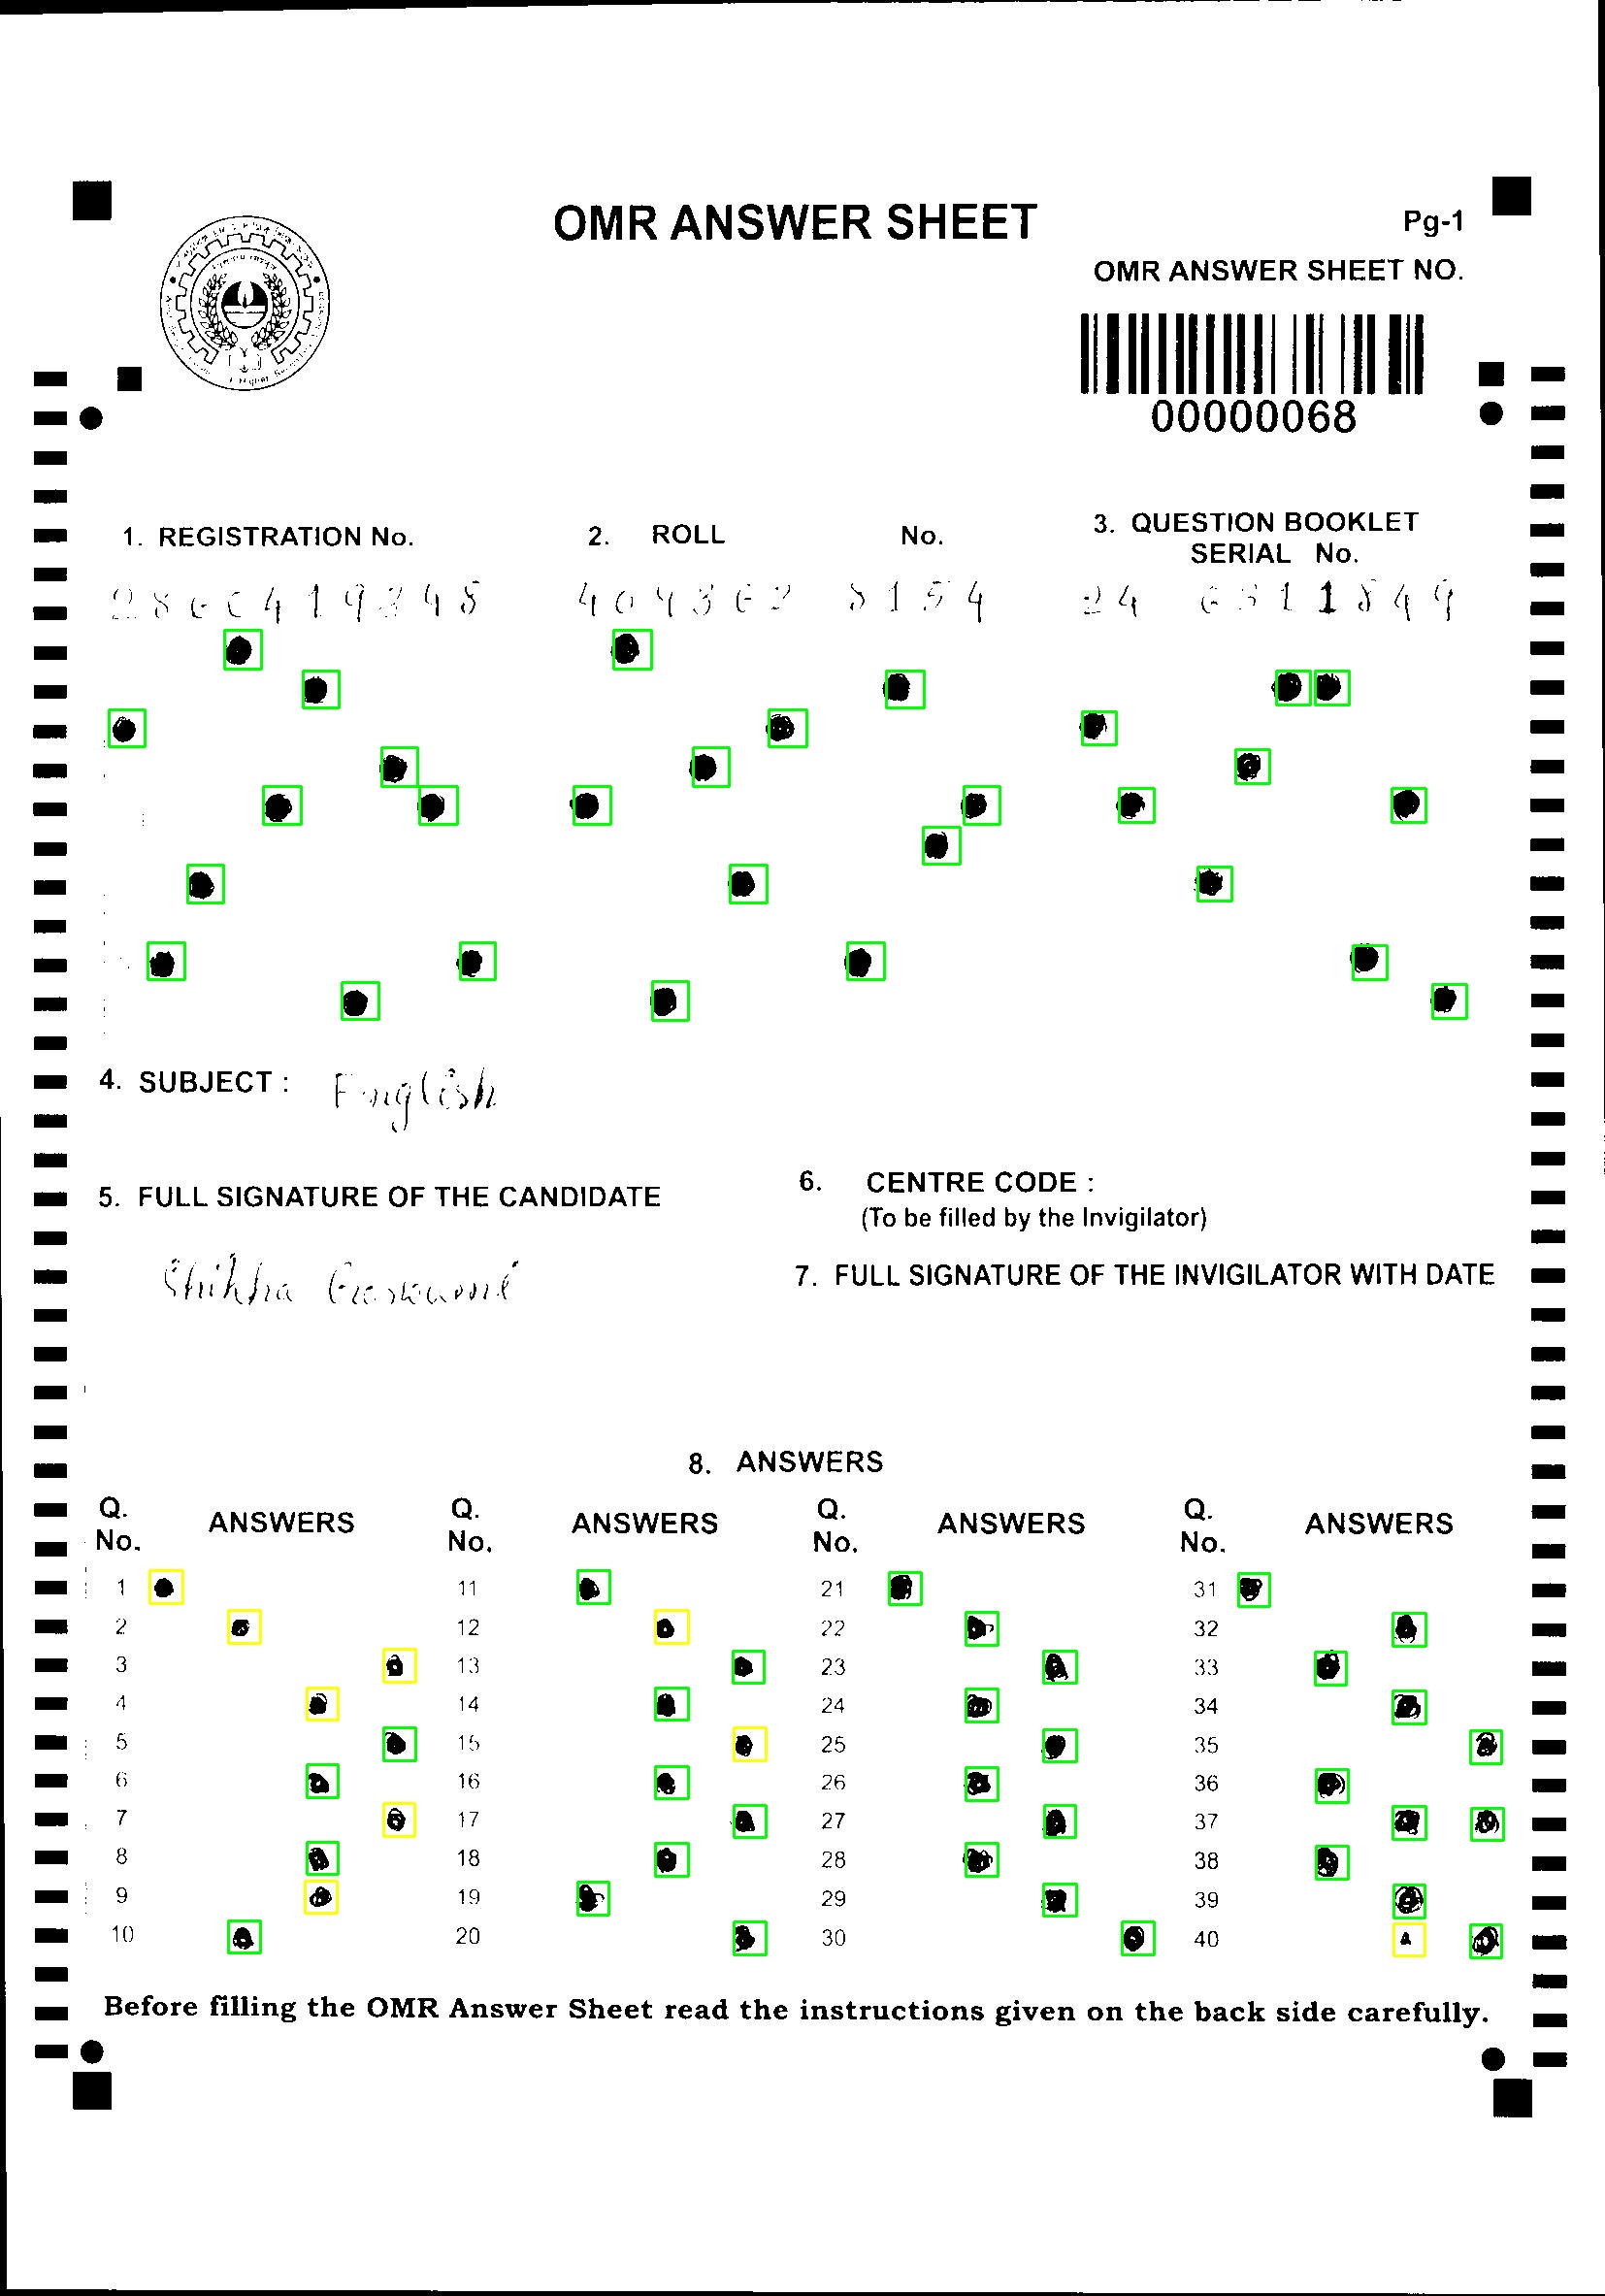 OMR ANSWER SHEET
Pg-1
OMR ANSWER SHEET NO.
00000068
1. REGISTRATION No.
2. ROLL No.
3. QUESTION BOOKLET
SERIAL No.
2860419348
409362 8154
24 6311849
4. SUBJECT : English
5. FULL SIGNATURE OF THE CANDIDATE
Shikha Goswami
6. CENTRE CODE :
(To be filled by the Invigilator)
7. FULL SIGNATURE OF THE INVIGILATOR WITH DATE
8. ANSWERS
Q. No. ANSWERS Q. No. ANSWERS Q. No. ANSWERS Q. No. ANSWERS
1 11 21 31
2 12 22 32
3 13 23 33
4 14 24 34
5 15 25 35
6 16 26 36
7 17 27 37
8 18 28 38
9 19 29 39
10 20 30 40
Before filling the OMR Answer Sheet read the instructions given on the back side carefully.